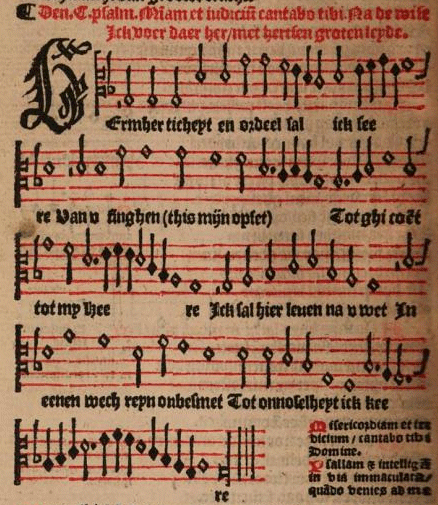 ☾ Den. C. psalm. Miam et iudiciū cantabo tibi. Na de wise
Ick voer daer her/met hertsen groten leyde.
Ermher ticheyt en ordeel sal ick see
re Van v singhen (this mijn opset) Tot ghi cōēt
tot my hee re Ick sal hier leuen na v wet In
eenen wech reyn onbesmet Tot onnoselheyt ick kee
re
Misericordiam et iu
dicium/cantabo tibi
Domine.
Psallam & intelligā
in via immaculata/
quādo venies ad me